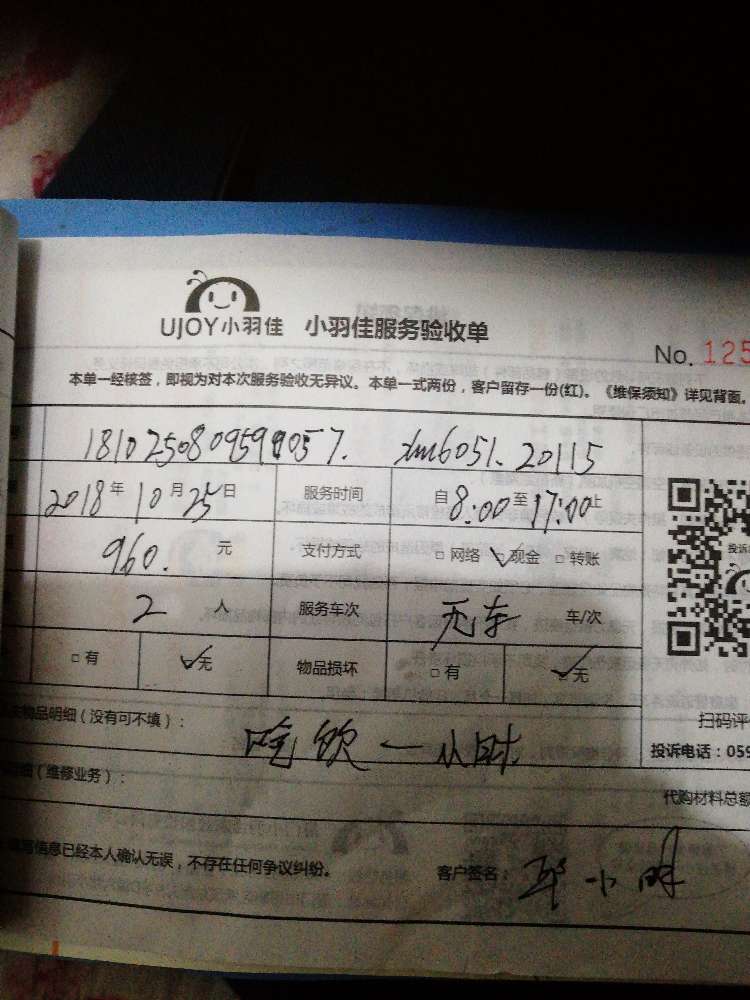 UJOY小羽佳 小羽佳服务验收单
No. 125
本单一经核签，即视为对本次服务验收无异议。本单一式两份，客户留存一份(红)。《维保须知》详见背面。
xm6051.20115
2018年10月25日 服务时间 自8:00至17:00止
960.元 支付方式 □网络 ✓现金 □转账
2人 服务车次 无车 车/次
□有 ✓无 物品损坏 □有 ✓无
投诉
物品明细（没有可不填）：
吃饭一小时
扫码评
投诉电话：059
（维修业务）：
代购材料总额
信息已经本人确认无误，不存在任何争议纠纷。 客户签名：
小明